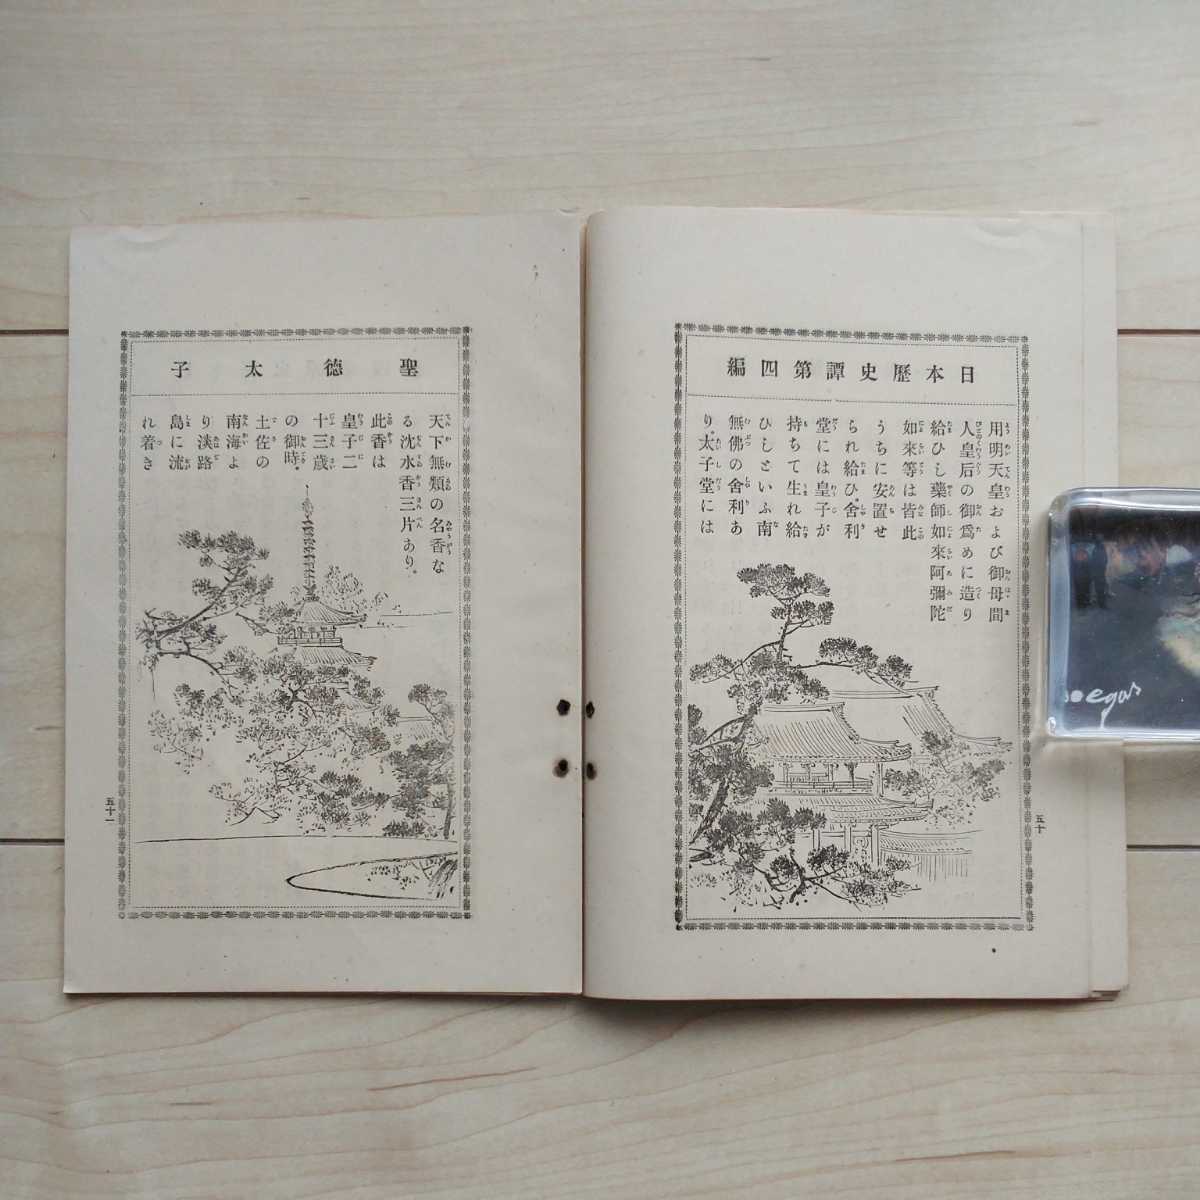 日本歷史譚第四編
用明天皇および御母間
人皇后の御爲めに造り
給ひし藥師如來阿彌陀
如來等は皆此
うちに安置せ
られ給ひ。舍利
堂には皇子が
持ちて生れ給
ひしといふ南
無佛の舍利あ
り。太子堂には
五十
聖德太子
天下無類の名香な
る沈水香三片あり。
此香は
皇子二
十三歲
の御時。
土佐の
南海よ
り淡路
島に流
れ着き
五十一
egas